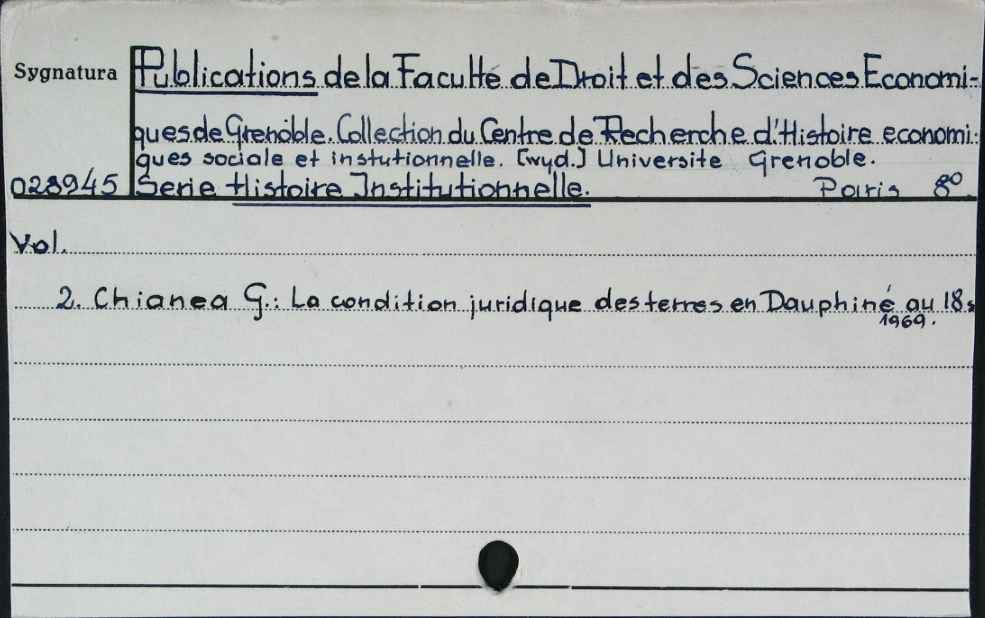 Sygnatura Publications de la Faculté de Droit et des Sciences Economi-
ques de Grenoble. Collection du Centre de Recherche d'Histoire economi-
ques sociale et instutionnelle. [wyd.] Universite Grenoble.
028945 Serie Histoire Institutionnelle. Paris 8°
Vol.
2. Chianea G.: La condition juridique des terres en Dauphiné au 18s
1969.